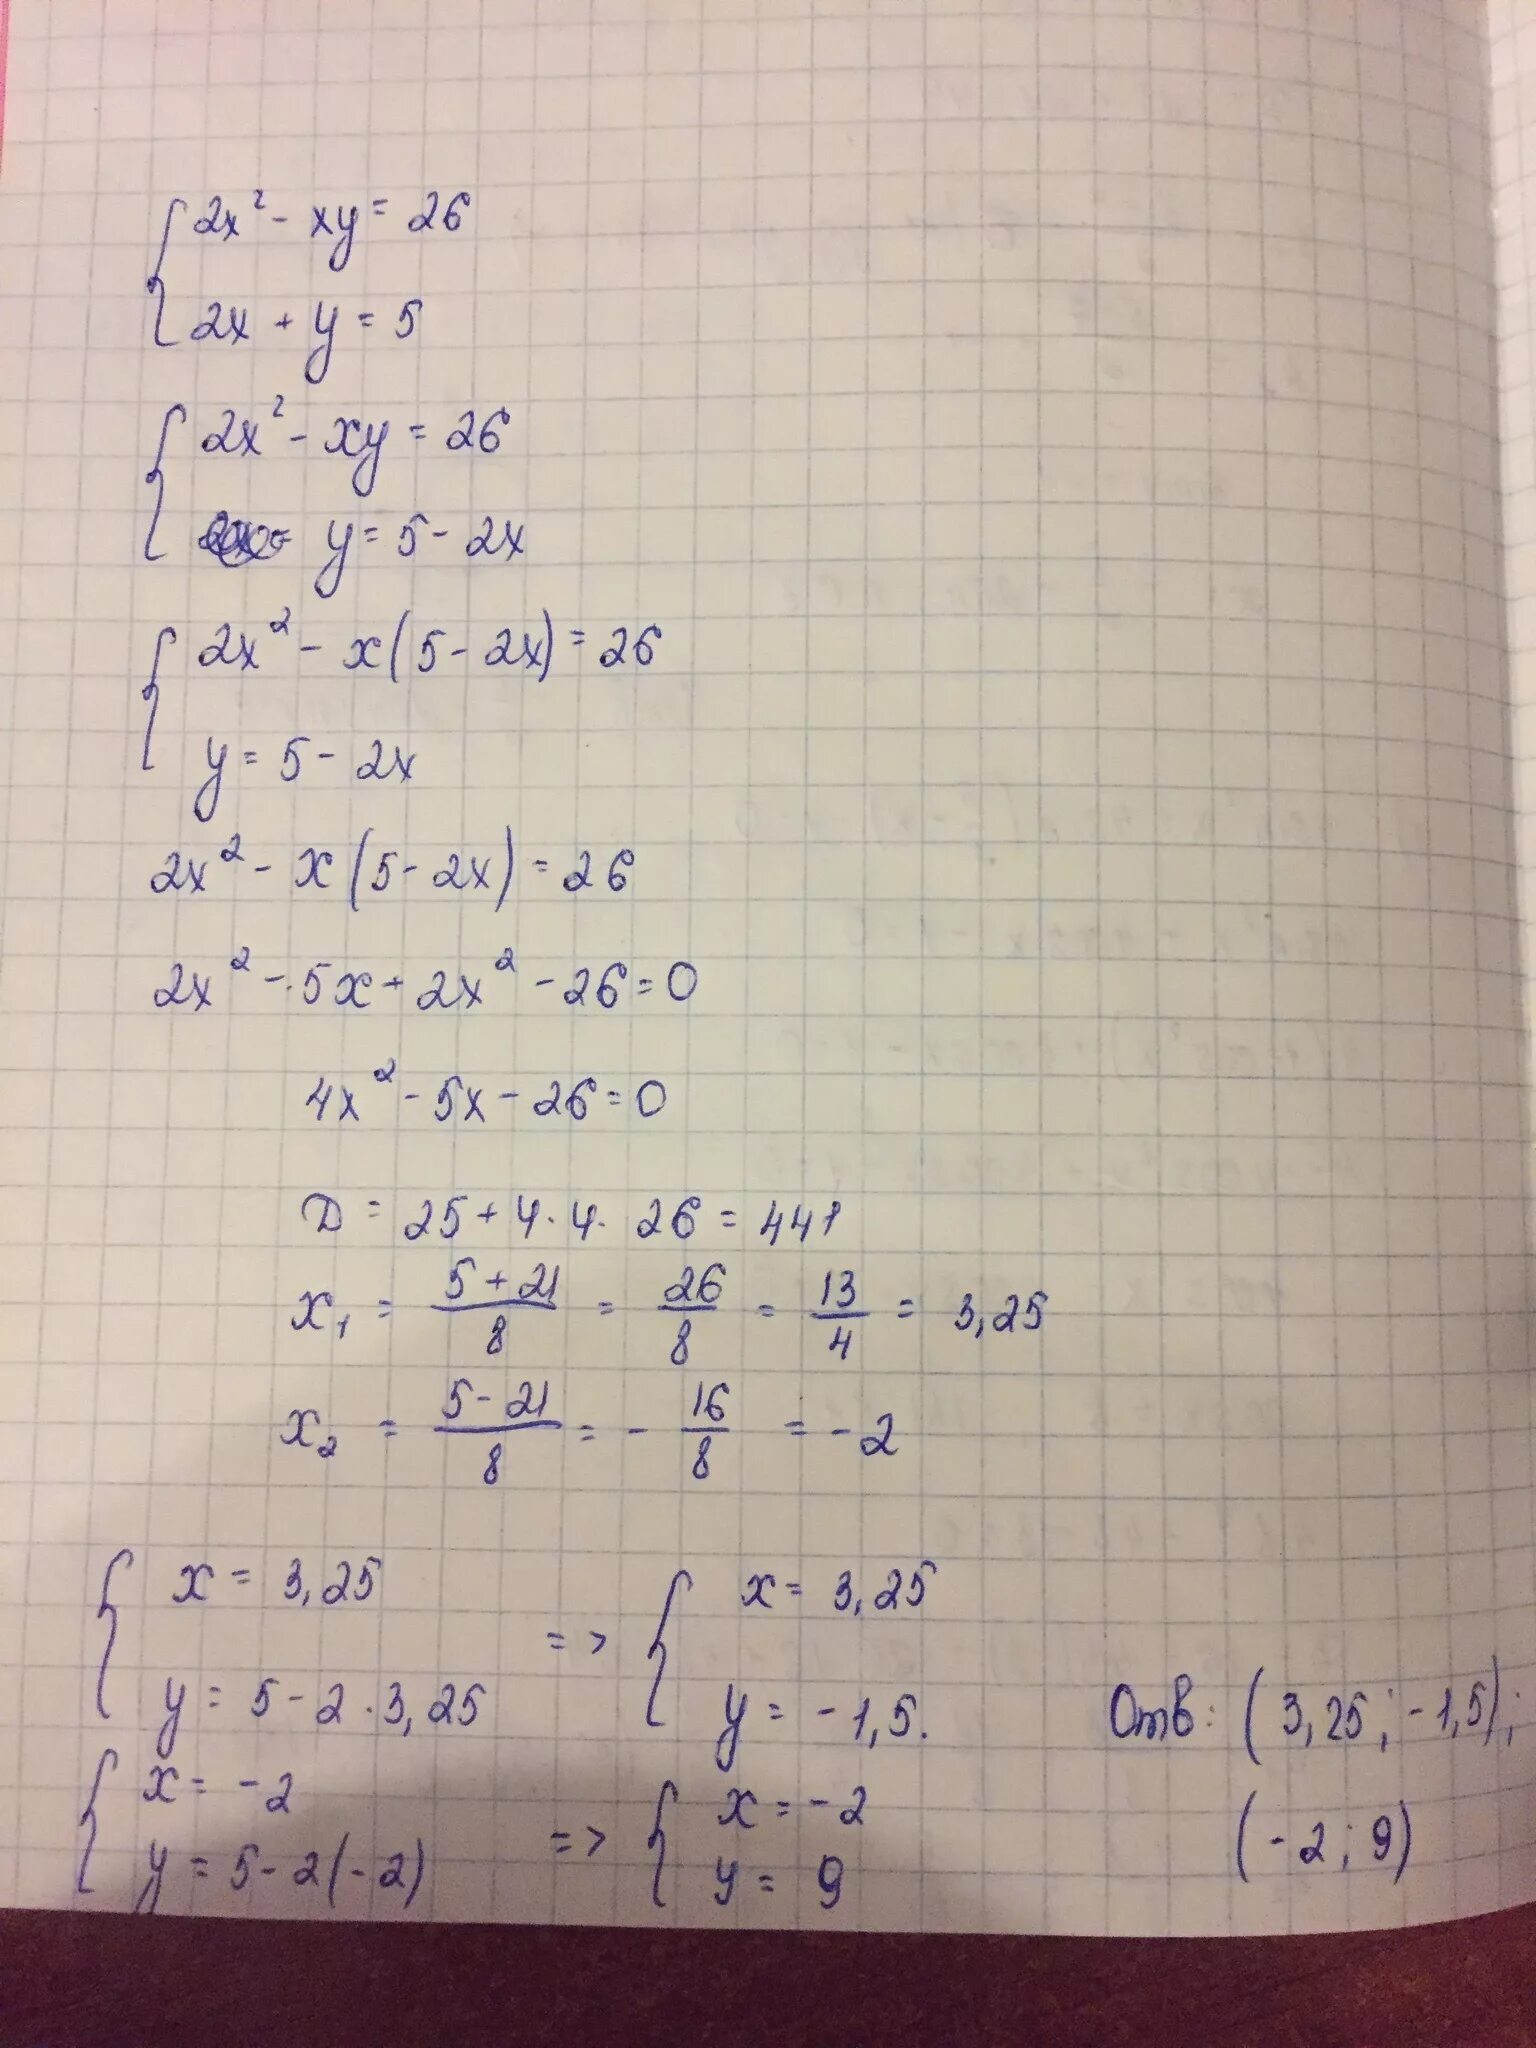 {2x² - xy = 26
2x + y = 5
{2x² - xy = 26
y = 5 - 2x
{2x² - x(5 - 2x) = 26
y = 5 - 2x
2x² - x(5 - 2x) = 26
2x² - 5x + 2x² - 26 = 0
4x² - 5x - 26 = 0
D = 25 + 4·4·26 = 441
x₁ = (5 + 21)/8 = 26/8 = 13/4 = 3,25
x₂ = (5 - 21)/8 = -16/8 = -2
{x = 3,25
y = 5 - 2·3,25
=> {x = 3,25
y = -1,5.
{x = -2
y = 5 - 2(-2)
=> {x = -2
y = 9
Отв: (3,25; -1,5);
(-2; 9)